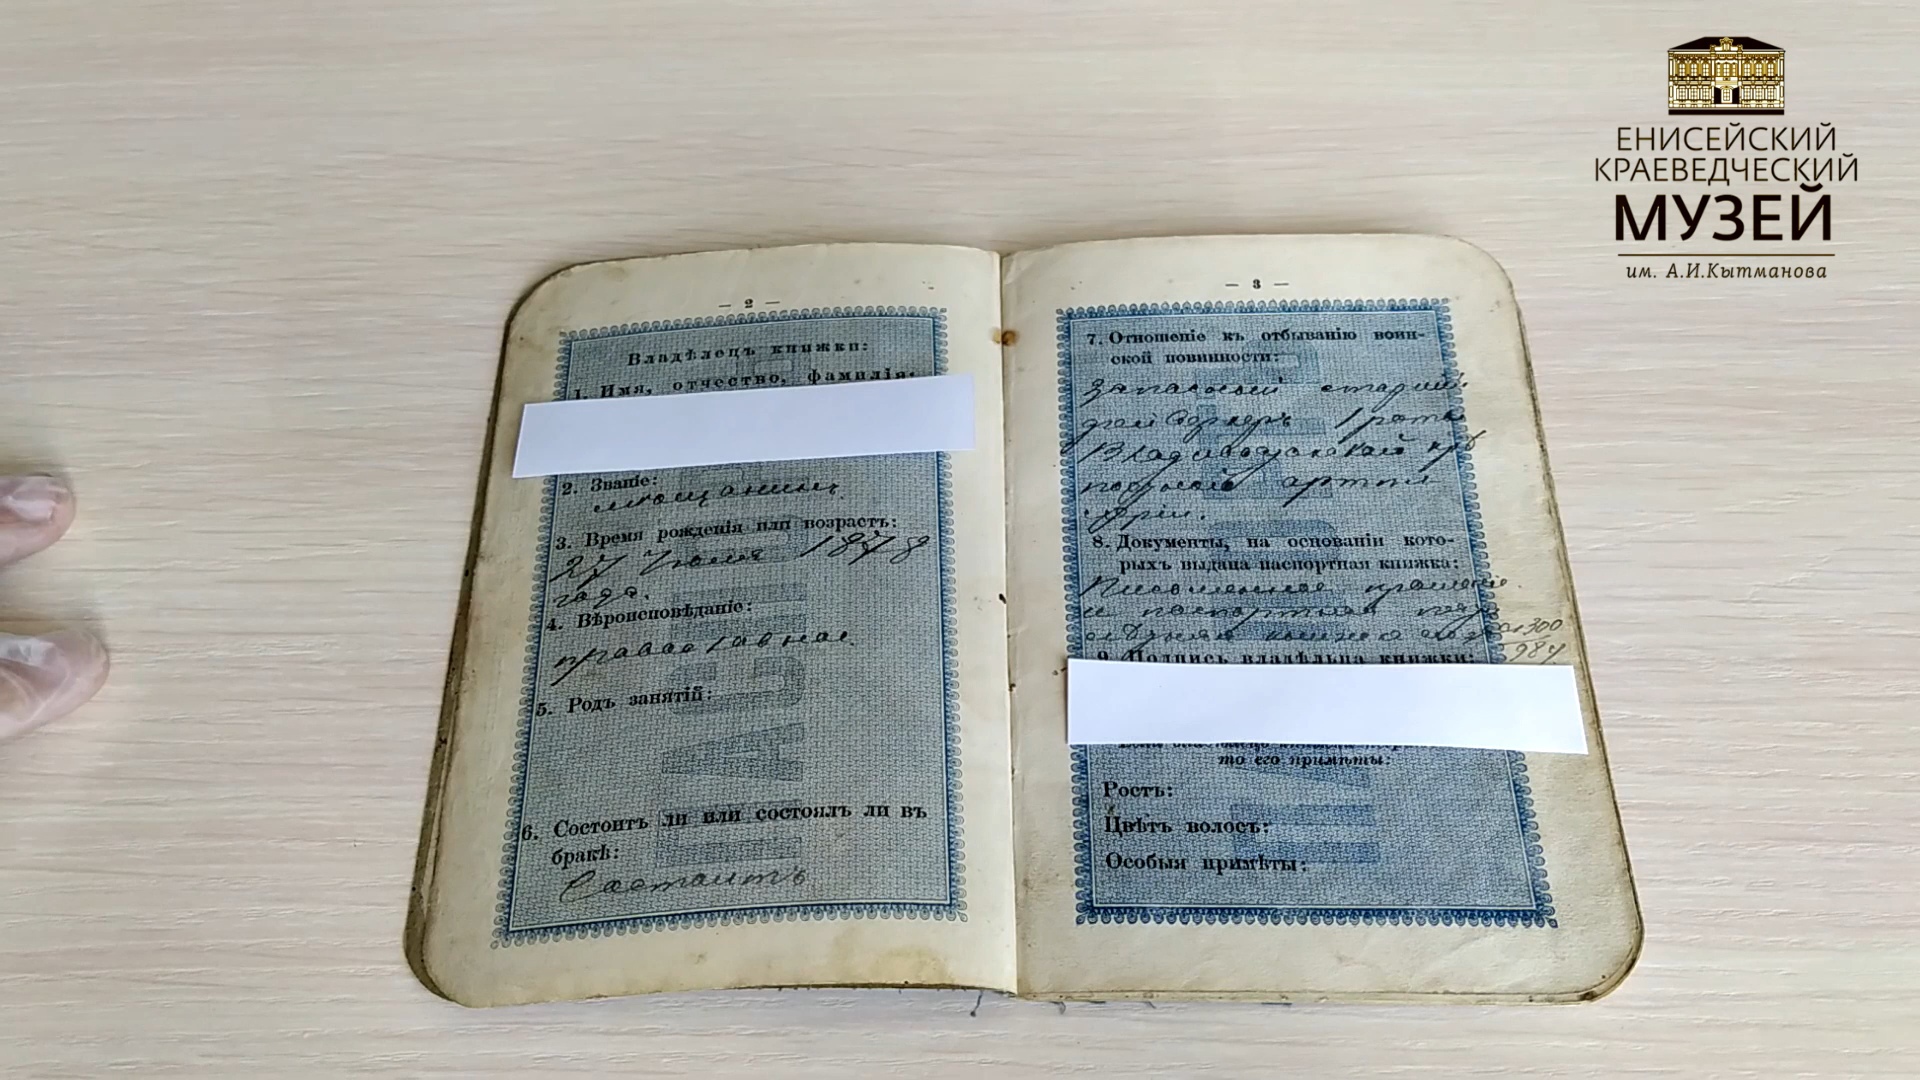 ЕНИСЕЙСКИЙ
КРАЕВЕДЧЕСКИЙ
МУЗЕЙ
им. А.И.Кытманова
— 2 —
Владѣлецъ книжки:
1. Имя, отчество, фамилія:
2. Званіе:
мѣщанинъ
3. Время рожденія или возрастъ:
27 Іюля 1878
года.
4. Вѣроисповѣданіе:
православное.
5. Родъ занятій:
6. Состоитъ ли или состоялъ ли въ
бракѣ:
Состоитъ
— 3 —
7. Отношеніе къ отбыванію воин-
ской повинности:
Запасный старшій
фейерверкеръ 1 роты
Владивостокской крѣ
постной артил
леріи.
8. Документы, на основаніи кото-
рыхъ выдана паспортная книжка:
Письменное прошеніе
и паспортная
книжка
1300
984
9. Подпись владѣльца книжки:
то его примѣты:
Ростъ:
Цвѣтъ волосъ:
Особыя примѣты: